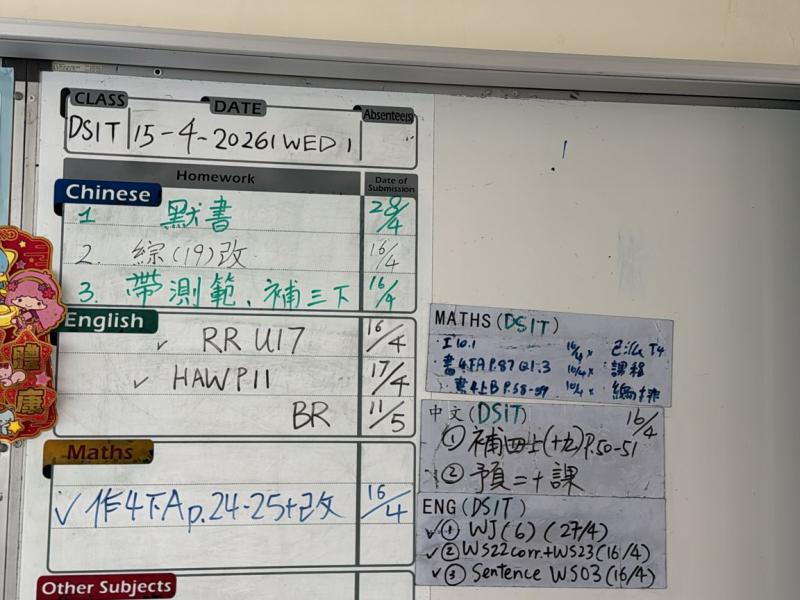 CLASS DATE Absenteers
DSIT 15-4-2026 WED
Homework Date of Submission
Chinese
1 默書 28/4
2. 綜(19)改 16/4
3. 帶測範、補三下 16/4
English
✓ RR U17 16/4
✓ HAWP11 17/4
BR 11/5
Maths
✓ 作4下A p.24-25+改 16/4
Other Subjects
MATHS (DSIT)
工10.1 16/4
書4下A P.87 Q1.3 16/4 課程
書4上B P.58-59 16/4
中文 (DSIT) 16/4
① 補四上(十九)P.50-51
② 預二十課
ENG (DSIT)
✓① WJ(6) (27/4)
✓② WS22corr.+WS23(16/4)
✓③ Sentence WS03 (16/4)